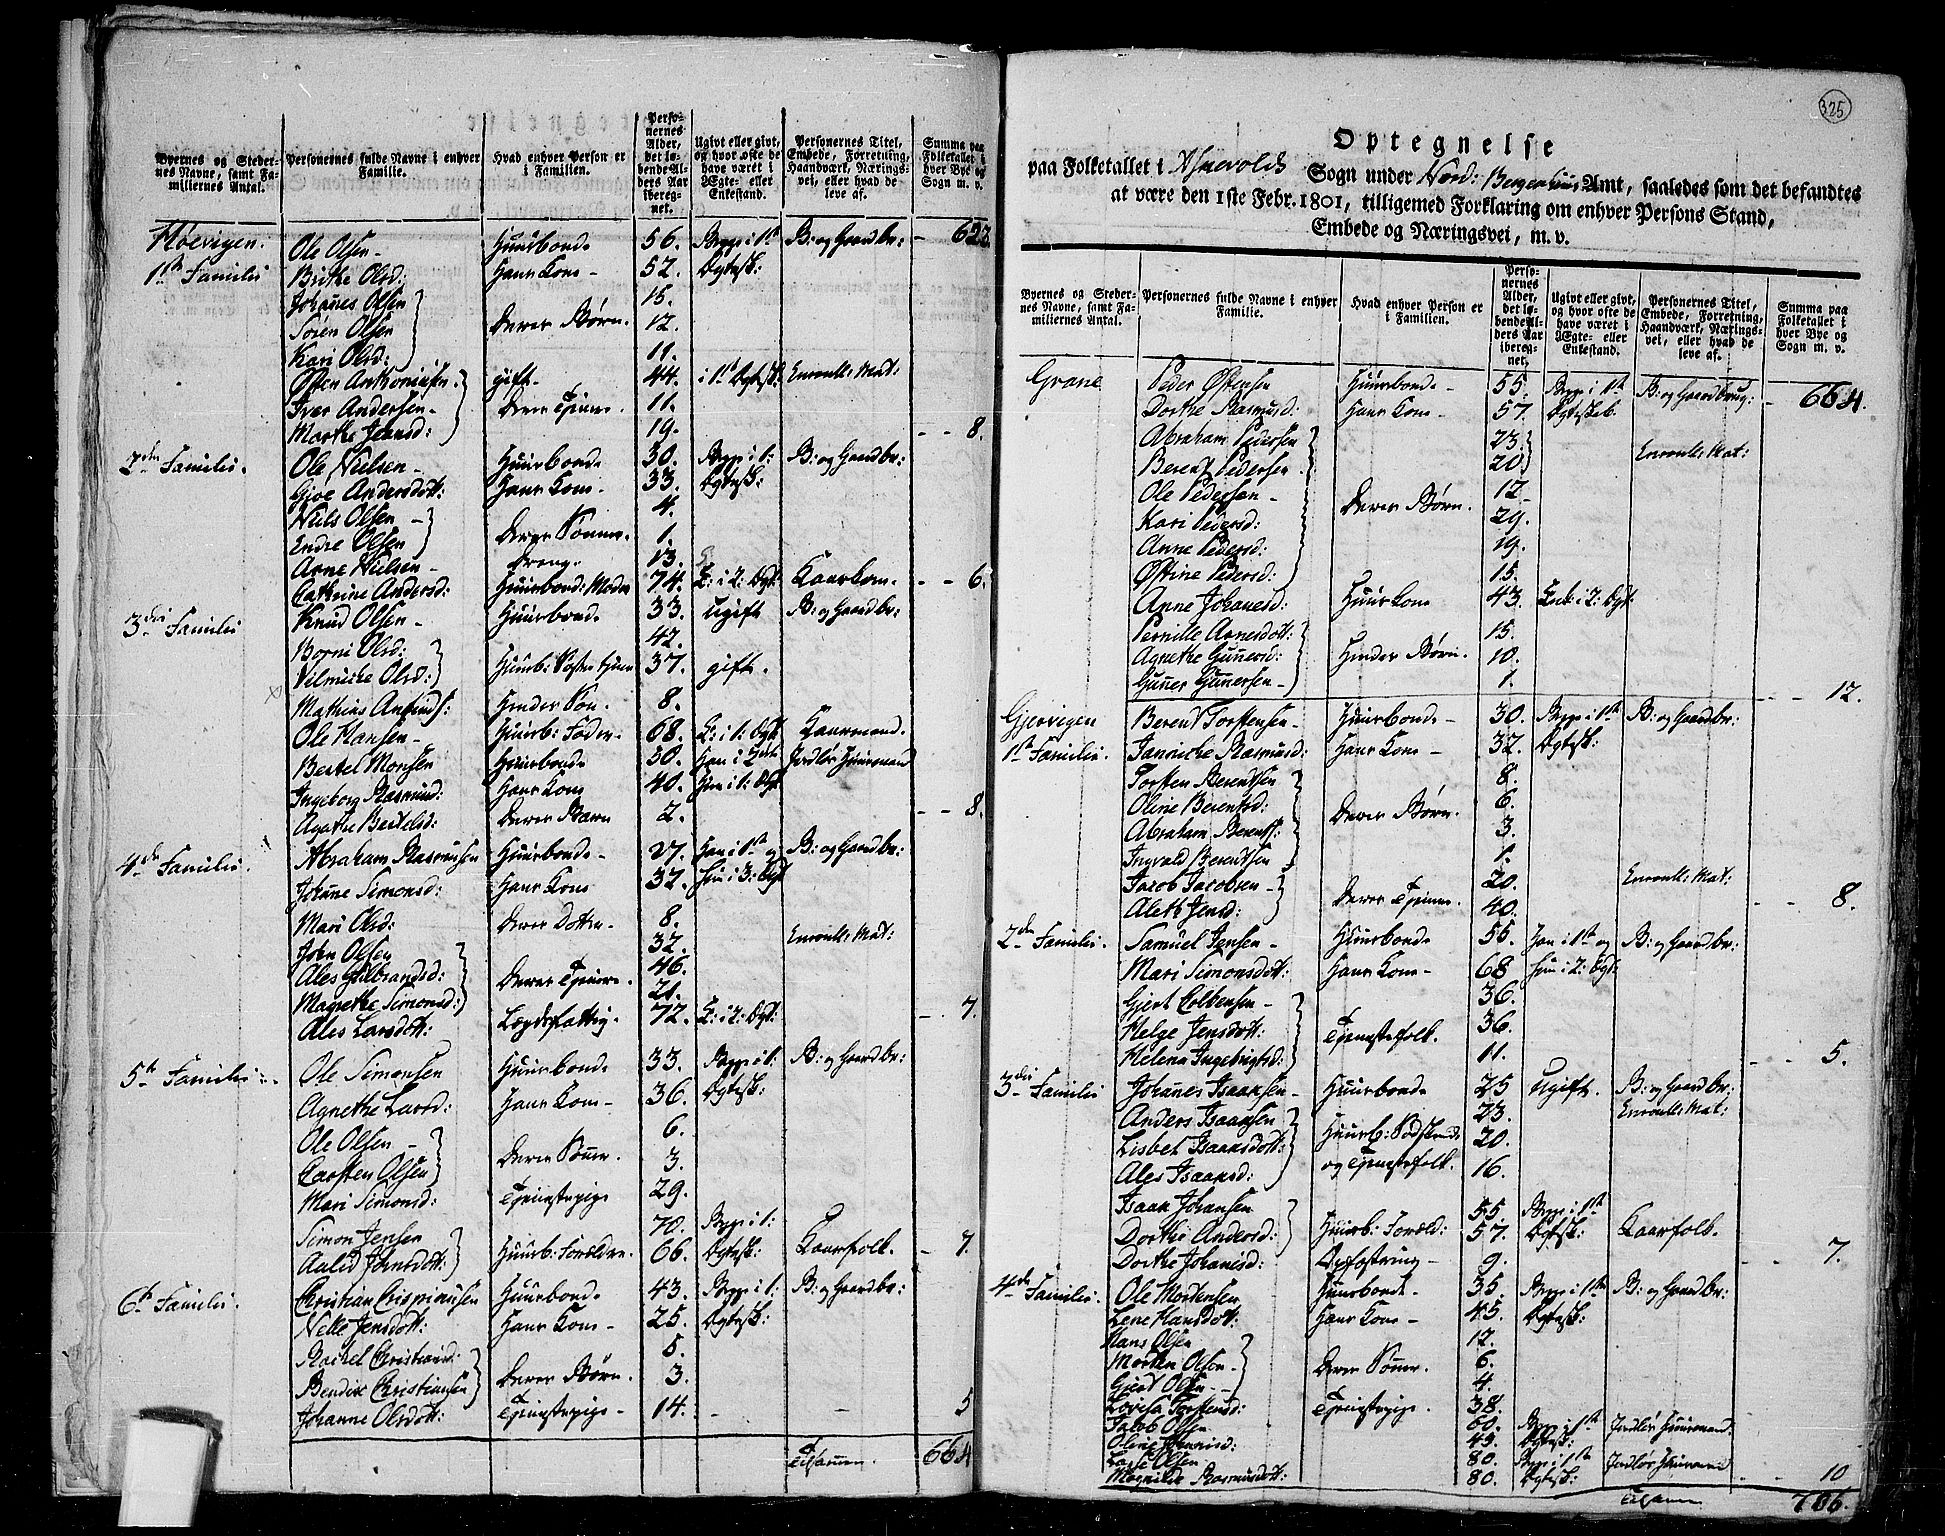 Byernes og Steder-
nes Navne, samt Fa-
miliernes Antal.
Personernes fulde Navne i enhver
Familie.
Hvad enhver Person er
i Familien.
Perso-
nernes
Alder,
det lø-
bende Al-
ders Aar
ibereg-
net.
Ugivt eller givt,
og hvor ofte de
have været i
Ægte- eller
Enkestand.
Personernes Titel,
Embede, Forretning,
Haandværk, Nærings-
vei, eller hvad de
leve af.
Summa paa
Folketallet i
hver Bye og
Sogn m. v.
Høevigen. Ole Olsen - Huusbonde 56. Begge i 1te B: og Gaardbr: - 622.
1te Familie Brithe Olsd: Hans Kone - 52. Ægtesk:
Johanes Olsen 15.
Sören Olsen Deres Børn. 12.
Kari Olsd: 11.
Østen Anthoniusen. gift. 44. i 1te Ægtesk: Enroull: Mat:
Iver Andersen - Deres Tienere. 11.
Marthe Jensd: 19. - - 8.
2den Familie. Ole Nielsen - Huusbonde 30. Begge i 1: B: og Gaardbr:
Gjoe Andersdott: Hans Kone. 33. Ægtesk:
Niels Olsen - 4.
Endre Olsen Deres Sönner. 1.
Arne Nielsen - Dreng. 13.
Cathrine Andersd: Huusbond: Moder 74. E: i 2: Ægt: Kaarkone. - - 6.
3die Familie Knud Olsen - Huusbonde 33. Ugift B: og Gaardbr:
Borni Olsd: 42.
Vilmiche Olsd: Huusb: Søstre tjener 37. gift.
Mathias Amunds: Hendes Sön. 8.
Ole Hansen - Huusb: Fader 68. E: i 1: Ægt Kaarmand.
Bertel Monsen Huusbonde 50. Han i 2det Jordløs Huusmand
Ingeborg Rasmusd: Hans Kone 40. Hun i 1: Ægt
Agathe Bertelsd: Deres Barn 2. - - 8.
4de Familie. Abraham Rasmusen Huusbonde - 27. Han i 1te og B: og Gaardbr:
Johane Simonsd: Hans Kone 32. hun i 3: Ægt
Mari Olsd: Deres Dotter - 8.
John Olsen 32. Enroull: Mat:
Ales Gulbrandsd: Deres Tienere. 46.
Magrethe Simonsd: 21.
Ales Larsdott: Lægdsfattig. 72. E: i 2: Ægt: - - 7.
5te Familie. Ole Simonsen Huusbonde 33. Begge i 1: B: og Gaardbr:
Agnethe Larsd: Hans Kone - 36. Ægtesk:
Ole Olsen - 6.
Carsten Olsen Deres Sönner. 3.
Mari Simonsd: Tienestepige 29.
Simon Jensen 70. Begge i 1:
Aaled Johnsdott: Huusb: Forældre. 66. Ægtesk: Kaarfolk. - 7.
6te Familie. Christian Chrispinusen Huusbonde 43. Begge i 1: B: og Gaardbr:
Nelle Jensdott: Hans Kone - 25. Ægtesk:
Rachel Christiansd: 5.
Bendix Christiansen Deres Børn. 3.
Johanne Olsdott: Tienestepige - 14. - - 5
Tilsamen. 664
325
Optegnelse
paa Folketallet i Askevolds Sogn under Nord: Bergenhuus Amt, saaledes som det befandtes
at være den 1ste Febr. 1801, tilligemed Forklaring om enhver Persons Stand,
Embede og Næringsvei, m. v.
Byernes og Steder-
nes Navne, samt Fa-
miliernes Antal.
Personernes fulde Navne i enhver
Familie.
Hvad enhver Person er
i Familien.
Perso-
nernes
Alder,
det lø-
bende Al-
ders Aar
ibereg-
net.
Ugivt eller givt,
og hvor ofte de
have været i
Ægte- eller
Enkestand.
Personernes Titel,
Embede, Forretning,
Haandværk, Nærings-
vei, eller hvad de
leve af.
Summa paa
Folketallet i
hver Bye og
Sogn m. v.
Grane Peder Østensen Huusbonde - 55. Begge i 1te B: og Gaardbrug: - 664.
Dorthe Rasmusd: Hans Kone - 57. Ægteskab.
Abraham Pedersen 23.
Berent Pedersen 20 Enroull: Mat:
Ole Pedersen - 12.
Kari Pedersd: Deres Børn. 29.
Anne Pedersd: 19.
Østine Pedersd: 15.
Anne Johanesd: Huuskone 43. Enke i 2: Ægt:
Pernille Arnesdott: 15.
Agnethe Gunersd: Hendes Børn. 10.
Guner Gunersen - 1. - - 12.
Gjervigen Berent Torstensen - Huusbonde - 30. Begge i 1te B: og Gaardbr:
1te Familie. Janniche Rasmusd: Hans Kone - 32. Ægtesk:
Torsten Berentsen 8.
Oline Berentsd: 6.
Abraham Berents: Deres Børn. 3.
Ingvald Berentsen 1.
Jacob Jacobsen - 20. Enroull: Mat:
Aleth Jensd: Deres Tienere. 40. - - 8.
2den Familie. Samuel Jensen - Huusbonde 55. Han i 1te og B: og Gaardbr:
Mari Simonsdott: Hans Kone - 68 hun i 2: Ægt:
Gjert Colbensen - 36.
Helge Jensdott: Tienestefolk. 36.
Helena Ingebrigtsd: 11. - - 5.
3die Familie Johanes Isaaksen - Huusbonde 25 Ugift. B: og Gaardbr:
Anders Isaaksen 23. Enroull: Mat:
Lisbet Isaaksdott: Huusb: Sødskende 20.
Ales Isaaksd: og Tienestefolk. 16.
Isaak Johansen 55 Begge i 1te
Dorthe Andersd: Huusb: Foræld: 57. Ægtesk: Kaarfolk.
Dorthe Johanisd: Opfostring - 9. - - 7.
4de Familie. Ole Mortensen Huusbonde. 35. Begge i 1te B: og Gaardbr:
Lene Hansdott: Hans Kone - 45. Ægtesk:
Hans Olsen 12.
Morten Olsen - Deres Sönner. 6.
Gjert Olsen - - 4.
Lovisa Torstensd: Tienestepige. 38.
Jacob Olsen 60. Begge i 1te Jordløs Huusmand.
Oline 49. Ægtesk:
Lasse Olsen 80. Begge i 1te Jordløs Huusmand
Magnilde Rasmusdott: 80. Ægtesk: - - 10
Tilsamen 706.